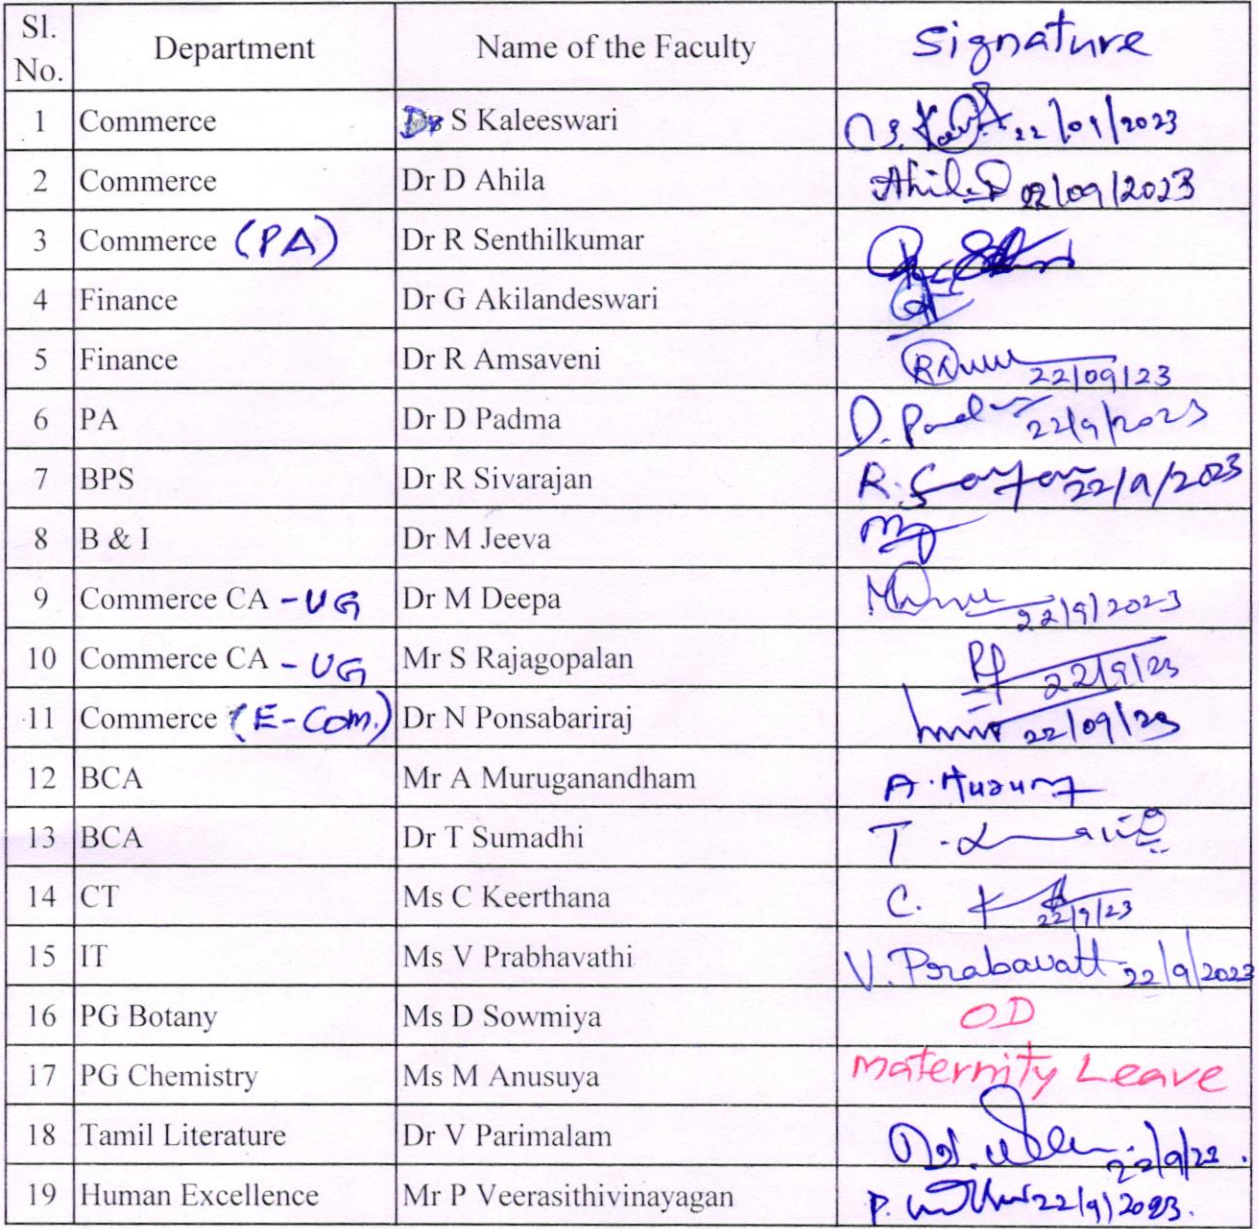 Sl. No. Department Name of the Faculty Signature
1 Commerce Dr S Kaleeswari 22/09/2023
2 Commerce Dr D Ahila Ahila D 02/09/2023
3 Commerce (PA) Dr R Senthilkumar
4 Finance Dr G Akilandeswari
5 Finance Dr R Amsaveni 22/09/23
6 PA Dr D Padma D. 22/9/2023
7 BPS Dr R Sivarajan R. 22/9/2023
8 B & I Dr M Jeeva
9 Commerce CA - UG Dr M Deepa 22/9/2023
10 Commerce CA - UG Mr S Rajagopalan 22/9/23
11 Commerce (E-Com.) Dr N Ponsabariraj 22/09/23
12 BCA Mr A Muruganandham A.
13 BCA Dr T Sumadhi T.
14 CT Ms C Keerthana C. 22/9/23
15 IT Ms V Prabhavathi V. 22/9/2023
16 PG Botany Ms D Sowmiya OD
17 PG Chemistry Ms M Anusuya Maternity Leave
18 Tamil Literature Dr V Parimalam 22/9/23.
19 Human Excellence Mr P Veerasithivinayagan P. 22/9/2023.